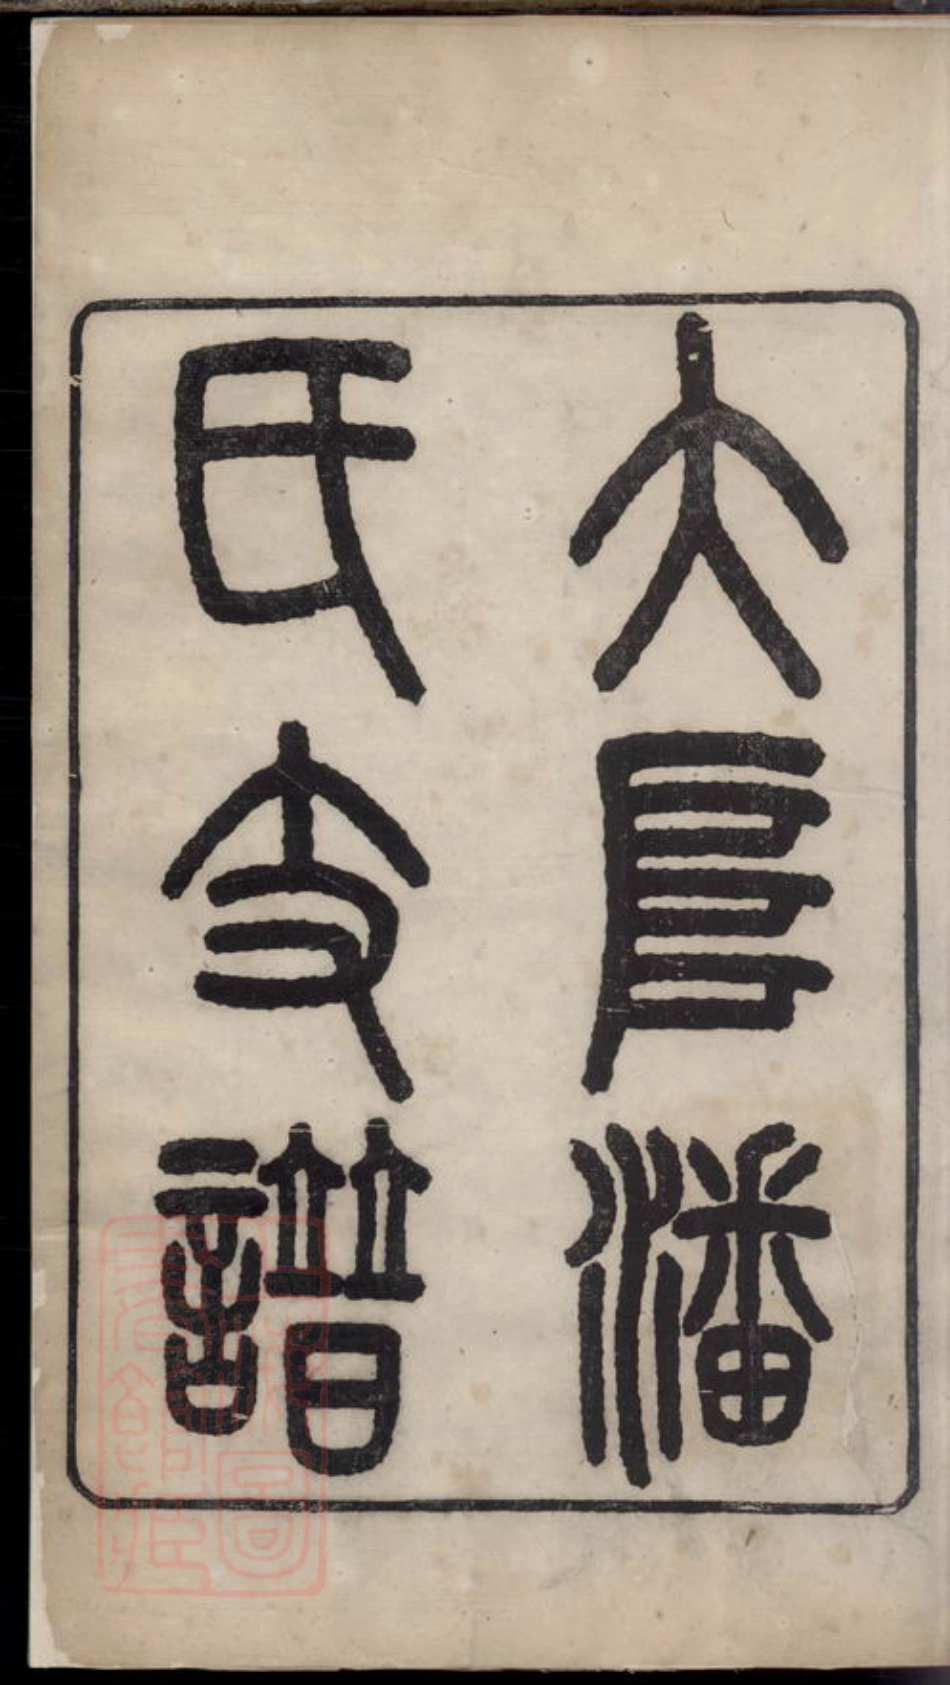 大阜潘
氏支譜